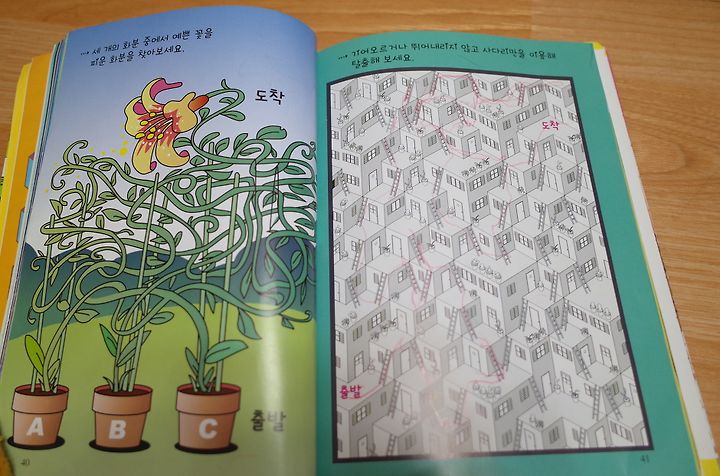 ···› 세 개의 화분 중에서 예쁜 꽃을
피운 화분을 찾아보세요.
도착
A
B
C
출발
40
···› 기어오르거나 뛰어내리지 않고 사다리만을 이용해
탈출해 보세요.
도착
출발
41